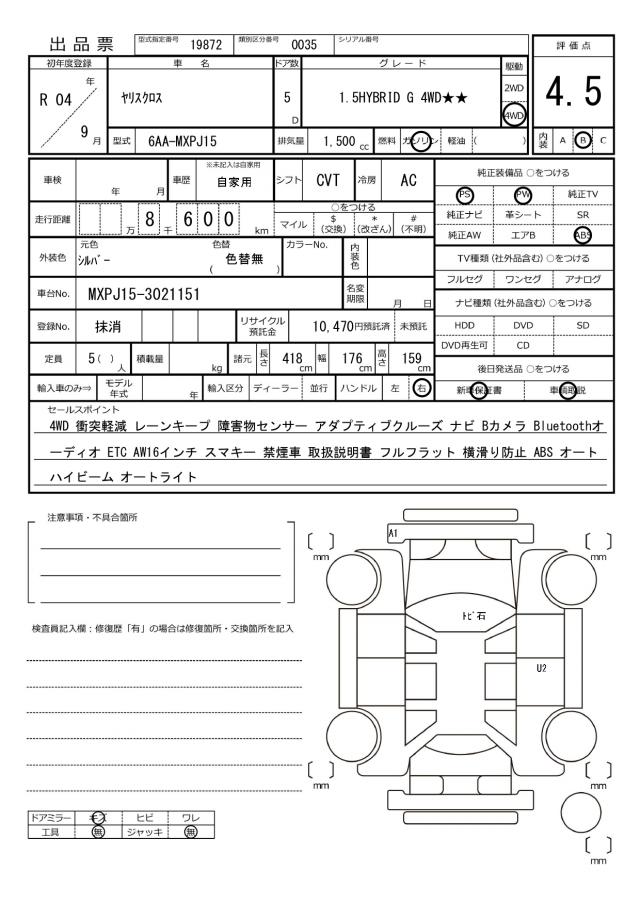 出品票 型式指定番号 19872 類別区分番号 0035 シリアル番号
評価点
4.5
初年度登録 車名 ドア数 グレード 駆動
R 04 年 9 月 ヤリスクロス 5 D 1.5HYBRID G 4WD★★ 2WD 4WD
型式 6AA-MXPJ15 排気量 1,500 cc 燃料 ガソリン 軽油 ( )
内装 A B C
車検 年 月 車歴 ※未記入は自家用 自家用 シフト CVT 冷房 AC
走行距離 万 8 千 6 0 0 km
○をつける
マイル $(交換) *(改ざん) #(不明)
外装色 元色 シルバー 色替 ( 色替無 ) カラーNo. 内装色
車台No. MXPJ15-3021151 名変期限 月 日
登録No. 抹消 リサイクル預託金 10,470円預託済 未預託
定員 5 ( ) 人 積載量 kg 諸元 長さ 418 cm 幅 176 cm 高さ 159 cm
輸入車のみ⇒ モデル年式 年 輸入区分 ディーラー 並行 ハンドル 左 右
純正装備品 ○をつける
PS PW 純正TV
純正ナビ 革シート SR
純正AW エアB ABS
TV種類 (社外品含む) ○をつける
フルセグ ワンセグ アナログ
ナビ種類 (社外品含む) ○をつける
HDD DVD SD
DVD再生可 CD
後日発送品 ○をつける
新車保証書 車輌取説
セールスポイント
4WD 衝突軽減 レーンキープ 障害物センサー アダプティブクルーズ ナビ Bカメラ Bluetoothオ
ーディオ ETC AW16インチ スマキー 禁煙車 取扱説明書 フルフラット 横滑り防止 ABS オート
ハイビーム オートライト
注意事項・不具合箇所
検査員記入欄：修復歴「有」の場合は修復箇所・交換箇所を記入
A1
〔 〕
mm
〔 〕
mm
トビ石
U2
〔 〕
mm
〔 〕
mm
〔 〕
mm
ドアミラー キズ ヒビ ワレ
工具 無 ジャッキ 無